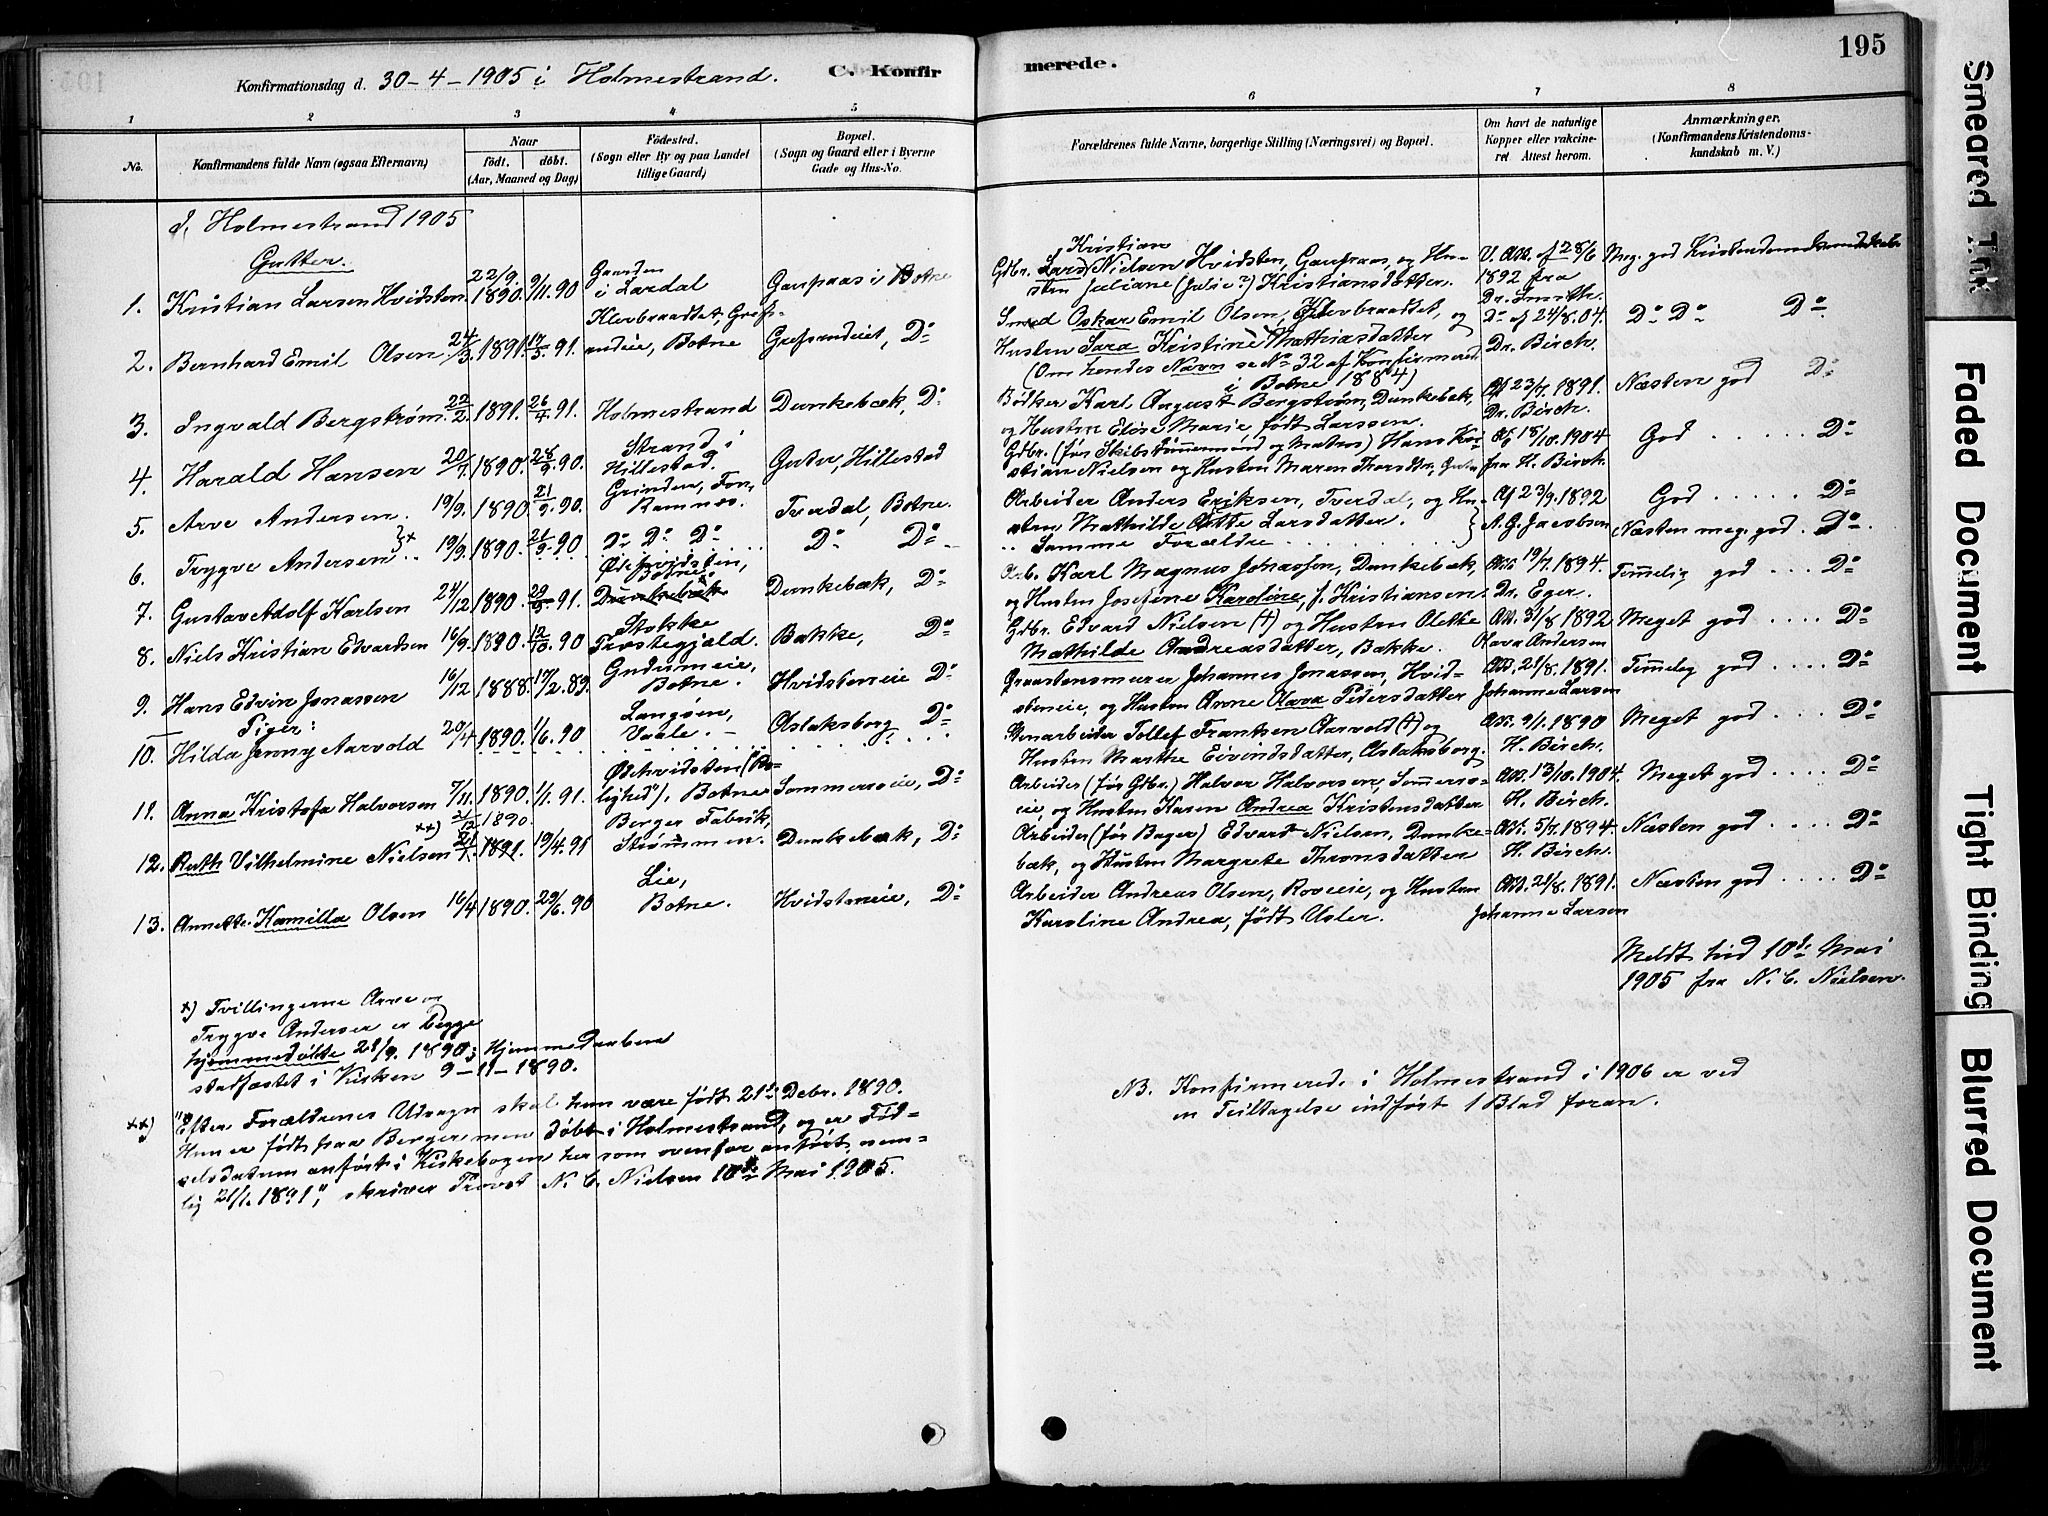 195
Konfirmationsdag d. 30-4-1905 i Holmestrand. C. Konfirmerede.
1 2 3 4 5 6 7 8
No.
Konfirmandens fulde Navn (ogsaa Efternavn)
Naar
født, døbt.
(Aar, Maaned og Dag)
Fødested.
(Sogn eller By og paa Landet
tillige Gaard)
Bopæl.
(Sogn og Gaard eller i Byerne
Gade og Hus-No.
Forældrenes fulde Navne, borgerlige Stilling (Næringsvei) og Bopæl.
Om havt de naturlige
Kopper eller vakcine-
ret Attest herom.
Anmærkninger.
(Konfirmandens Kristendoms-
kundskab m. V.)
i Holmestrand 1905
Gutter.
1. Kristian Larsen Hvidsten 22/9 1890. 9/11.90 Gaarden i Lardal Gaupaas i Botne
Gdbr. Lars Kristian Nielsen Hvidsten, Gaupaas, og Hu-
sten Juliane (Julie?) Kristiansdatter.
V. Att. af 28/6 1892 fra Dr. Smith.
Meg. god Kristendomskundskab
2. Bernhard Emil Olsen 24/3 1891. 17/5 91. Klevbraadtet, Grefs-
rudeie, Botne Grefsrudeiet, Do
Smed Oskar Emil Olsen, Klevbraadtet, og
Husten Sara Kristine Mathiasdatter
(Om hendes Navn se No 32 af Konfirmered.
i Botne 1884)
Do af 24/8.04. Dr. Birch. Do Do Do
3. Ingvald Bergstrøm 22/2. 1891. 26/4 91. Holmestrand Dunkebæk, Do
Bødker Karl August Bergstrøm, Dunkebæk,
og Husten Elise Marie født Larssen.
Af 23/7 1891. Dr. Birch. Næsten god Do
4. Harald Hansen 20/7 1890. 28/9 90. Strand i Hillestad. Gutu, Hillestad
Gdbr. (før Skibstømmermand og Matros) Hans Kri-
stian Nielsen og Husten Maren Thorsdtr, Gutu
Af 18/10.1904 fra H. Birch. God . . . . . . Do
5. Arve Andersen. 19/9. 1890. 21/9 90. Grinden, Fon, Ramnæs. Tverdal, Botne.
Arbeider Anders Eriksen, Tverdal, og Hu-
sten Mathilde Larsdatter.
Af 23/9. 1892 A. G. Jacobsen God . . . . . Do
6. Trygve Andersen x 19/9. 1890. 21/9 90 Do Do Do Do Do
Samme Forældre
Næsten meg. god . Do
7. Gustav Adolf Karlsen 24/12 1890. 29/3 91. Ødehvidsten, Botne. Dunkebæk Dunkebæk, Do
Arb. Karl Magnus Johassen, Dunkebæk,
og Husten Josefine Karoline, f. Kristiansen.
Att. 19/7. 1894. Dr. Eger. Temmelig god . . . Do
8. Niels Kristian Edvardsen 16/9. 1890. 12/10 90 Stokke Præstegjæld. Bakke, Do
Gdbr. Edvard Nielsen (†) og Husten Olette
Mathilde Andreasdatter, Bakke.
Att. 31/8 1892 Olava Andersen Meget god . . . . Do
9. Hans Edvin Jonassen 16/12 1888. 17/2.89. Gudumeie, Botne. Hvidsteneie Do
Graastensmurer Johannes Jonassen, Hvid-
steneie, og Husten Anne Olava Pedersdatter
Att. 21/8. 1891. Johanne Larsen Temmelig god . . . . Do
Piger:
10. Hilda Jenny Aarvold 20/4 1890. 1/6.90 Langøen, Vaale. Aslaksborg Do
Stenarbeider Tollef Frantsen Aarvold (†) og
Husten Marthe Eivindsdatter, Aslaksborg.
Att. 9/1. 1890 H. Birch. Meget god . . . . Do
11. Anna Kristofa Halvorsen 7/11. 1890. 1/1.91. Ødehvidsten ("Ro-
lighed"), Botne Sommeroeie, Do
Arbeider (før Gdbr.) Halvor Halvorsen, Sommero-
eie, og Husten Karen Andrea Kristensdatter
Att. 13/10.1904. H. Birch. Meget god . . . . Do
12. Ruth Vilhelmine Nielsen xx) 21/12 1890 21/1. 1891. 19/4.91 Berger Fabrik, Strømmen. Dunkebæk, Do
Arbeider (før Bager) Edvard Nielsen, Dunke-
bæk, og Husten Margrete Thronsdatter
Att. 5/7. 1894. H. Birch. Næsten god . . . . Do
13. Annette Kamilla Olsen 16/4 1890. 29/6.90 Lie, Botne. Hvidsteneie, Do
Arbeider Andreas Olsen, Roveeie, og Husten
Karoline Andrea, født Usler.
Att. 21/8. 1891. Johanne Larsen Næsten god . . . . . Do
Meldt hid 10de Mai
1905 fra N. C. Nielsen.
x) Tvillingerne Arve og
Trygve Andersen er begge
hjemmedøbte 21/9. 1890; Hjemmedaaben
stadfæstet i Kirken 9-11-1890.
xx) "Efter Forældrenes Udsagn skal hun være født 21de Debr. 1890.
Hun er født paa Berger men døbt i Holmestrand, og er Fød-
selsdatum anført i Kirkebogen her som ovenfor anført, nem-
lig 21/1. 1891", skriver Provst N. C. Nielsen 10de Mai 1905.
NB. Konfirmerede i Holmestrand i 1906 er ved
en Feiltagelse indført 1 Blad foran.
Smeared Ink
Faded Document
Tight Binding
Blurred Document